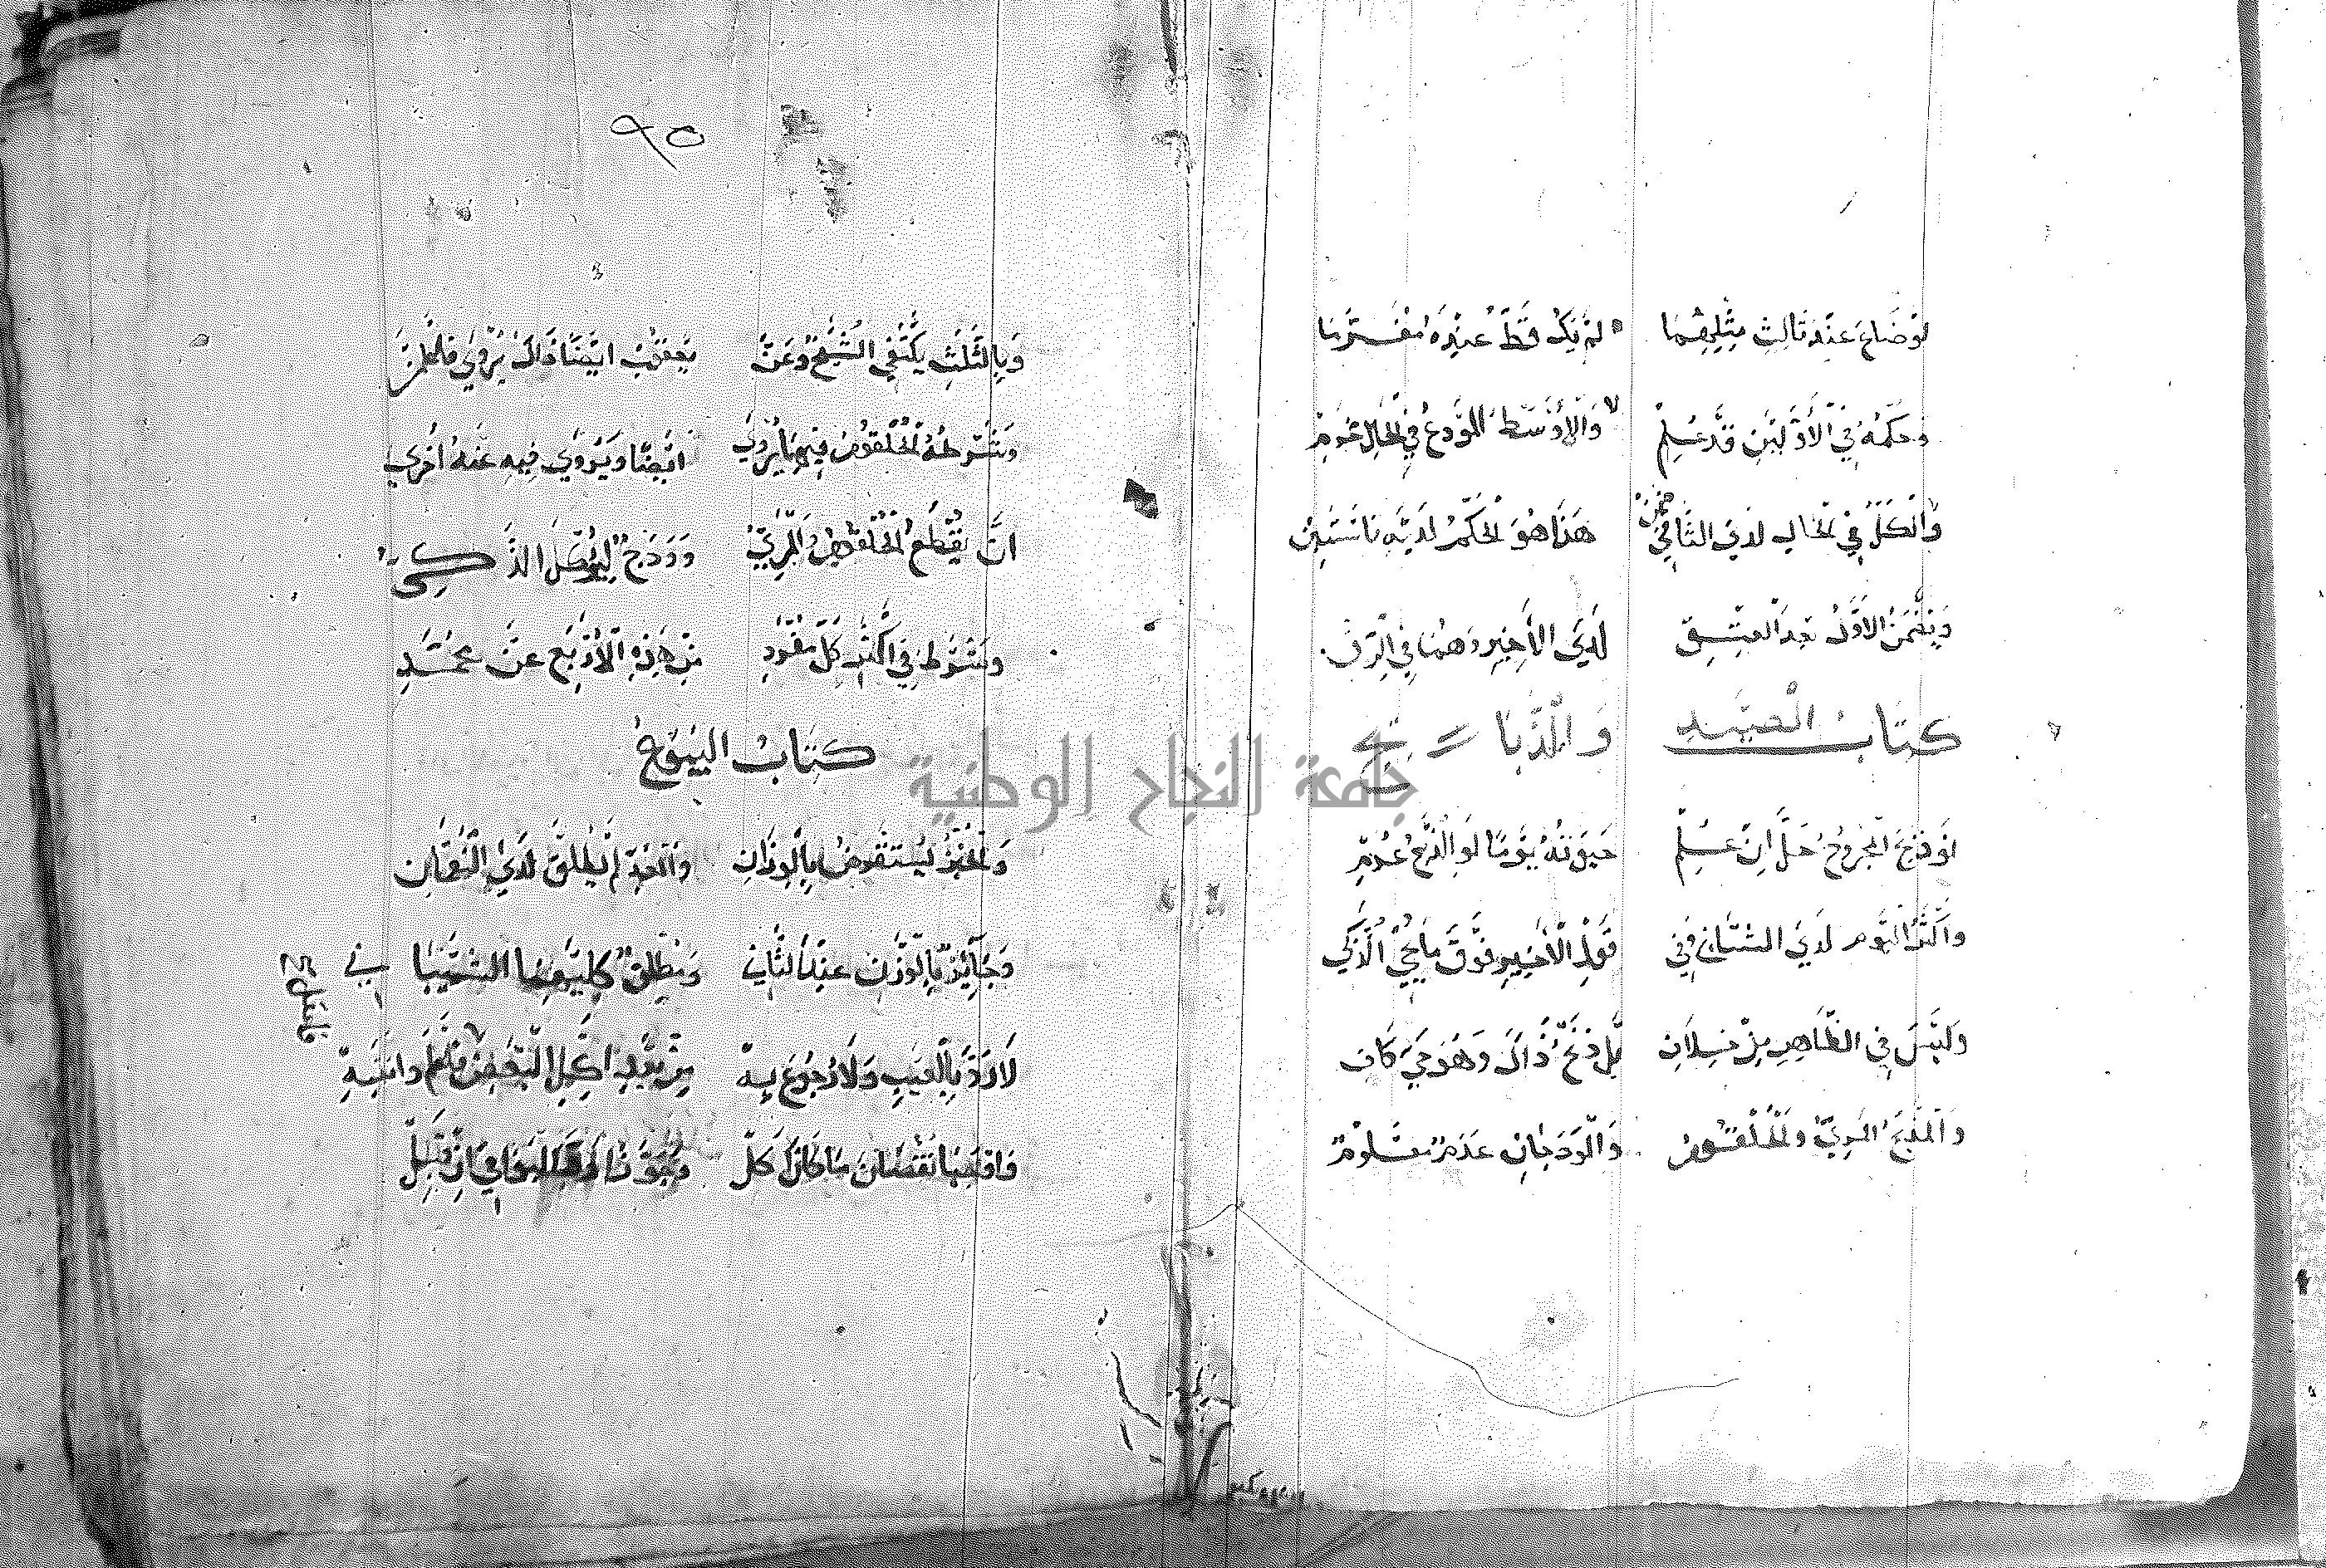 لَوْ ضَاعَ عِنْدَ ثَالِثٍ مِثْلِهِمَا لَمْ يَكُ قَطُّ عِنْدَهُ مُغَرَّمَا
وَحُكْمُهُ فِي الْأَوَّلَيْنِ قَدْ عُلِمْ وَالْأَوْسَطُ الْمُودَعُ فِي الْحَالِ
وَالْكُلُّ فِي الْحَالِ لَدَى الثَّانِي ضَمِنْ هَذَا هُوَ الْحُكْمُ لَدَيْهِ فَاسْتَبِنْ
وَيَضْمَنُ الْأَوَّلُ بَعْدَ الْعِتْقِ لَدَى الْأَخِيرِ وَهُمَا فِي الرِّقِّ
كتاب الصيد والذبائح
لَوْ ذُبِحَ الْمَجْرُوحُ حَلَّ إِنْ عُلِمْ حَيَوتُهُ يَوْمًا لَوِ الذَّبْحُ عُدِمْ
وَأَكْثَرُ الْيَوْمِ لَدَى الثَّانِي وَفِي قَوْلِ الْأَخِيرِ فَوْقَ مَا يَحْيَى الذَّكِي
وَلَيْسَ فِي الظَّاهِرِ مِنْ خِلَافِ بَلْ ذَبْحُ ذَاكَ وَهْوَ حَيٌّ كَافِ
وَالْمَذْبَحُ الْمَرِيُّ وَالْحُلْقُومُ وَالْوَدَجَانِ عَدُّهَا مَعْلُومُ
٩٥
وَبِالثَّلَثِ يَكْتَفِي الشَّيْخُ وَعَنْ يَعْقُوبَ أَيْضًا ذَاكَ يُرْوَى فَاعْلَمَنْ
وَشَرْطُهُ الْحُلْقُومُ فِيمَا يُرْوَى أَيْضًا وَيُرْوَى فِيهِ عَنْهُ أُخْرَى
أَنْ يُقْطَعَ الْحُلْقُومُ وَالْمَرِيُّ وَوَدَجٌ لِيُؤْكَلَ الذَّكِيُّ
وَشَرَطَ فِي أَكْثَرِ كُلٍّ مُفْرَدِ مِنْ هَذِهِ الْأَرْبَعِ عَنْ مُحَمَّدِ
كتاب البيوع
وَالْخُبْزُ يُسْتَقْرَضُ بِالْوِزَانِ وَالْعَدُّ لَمْ يُطْلَقْ لَدَى النُّعْمَانِ
وَجَائِزٌ بِالْوَزْنِ عِنْدَ الثَّانِي وَمُطْلَقٌ كِلَيْهِمَا الشَّيْبَانِي
لَا رَدَّ بِالْعَيْبِ وَلَا رُجُوعَ بِهْ مِنْ بَعْدِ أَكْلِ الْبَعْضِ فَاعْلَمْ وَانْتَبِهْ
نُقْصَانَ مَا كَانَ أَكَلْ إِنْ قَبِلْ